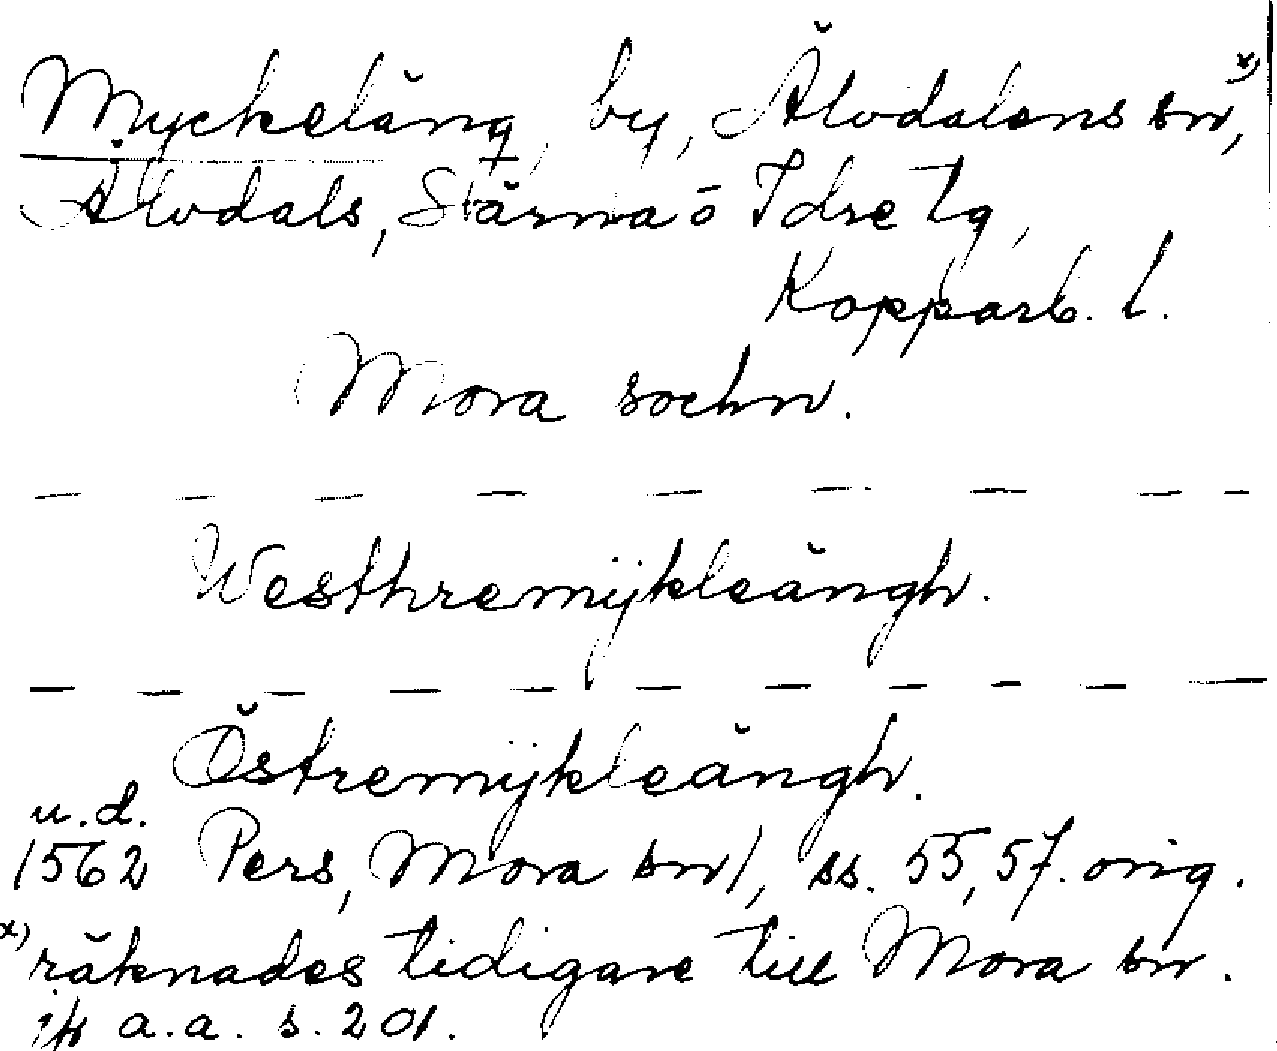 Myckeläng, by, Älvdalens sn, x)
Älvdals, Särna o Idre tg,
Kopparb. l.
Mora sochn.
— — — — — — — — —
Westhremÿkleängh.
— — — — — — — — — — —
Östremÿkleängh.
u.d.
1562 Pers, Mora sn), ss. 55, 57. orig.
x) räknades tidigare till Mora sn.
jfr a.a. s. 201.